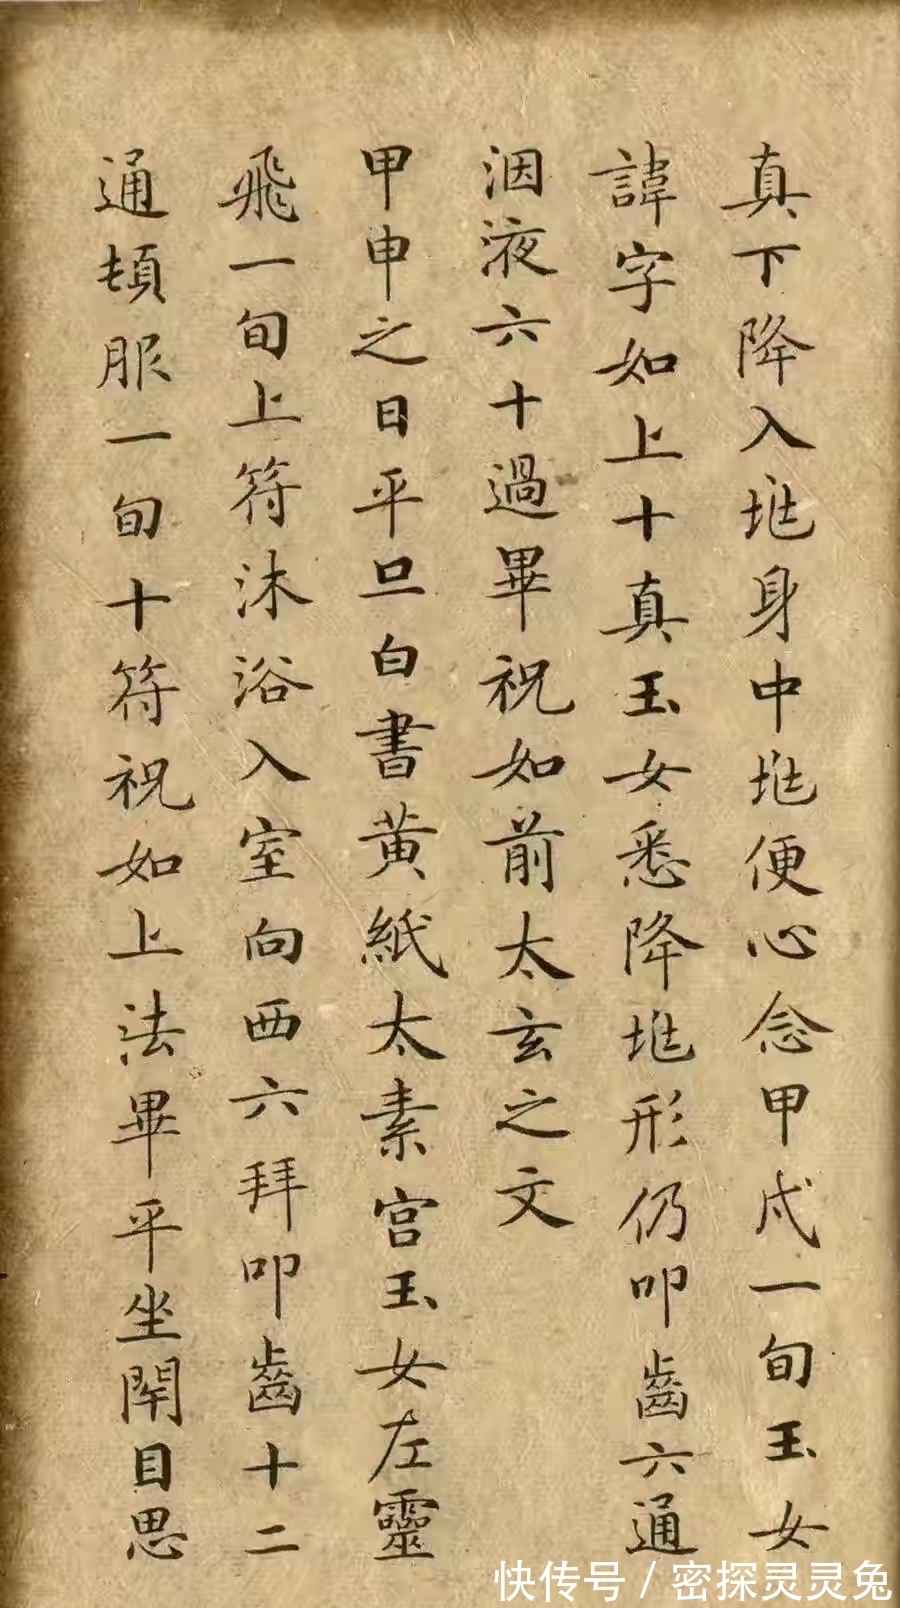 真下降入兆身中兆便心念甲戌一旬玉女
諱字如上十真玉女悉降兆形仍叩齒六通
洇液六十過畢祝如前太玄之文
甲申之日平旦白書黄紙太素宫玉女左靈
飛一旬上符沐浴入室向西六拜叩齒十二
通頓服一旬十符祝如上法畢平坐閉目思
快传号 / 密探灵灵兔